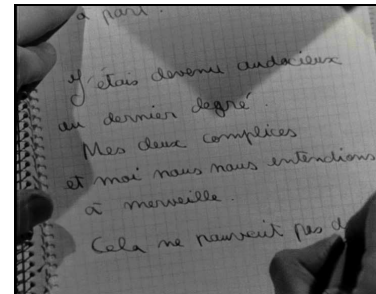 à part.
J'étais devenu audacieux
au dernier degré.
Mes deux complices
et moi nous nous entendions
à merveille.
Cela ne pouvait pas d